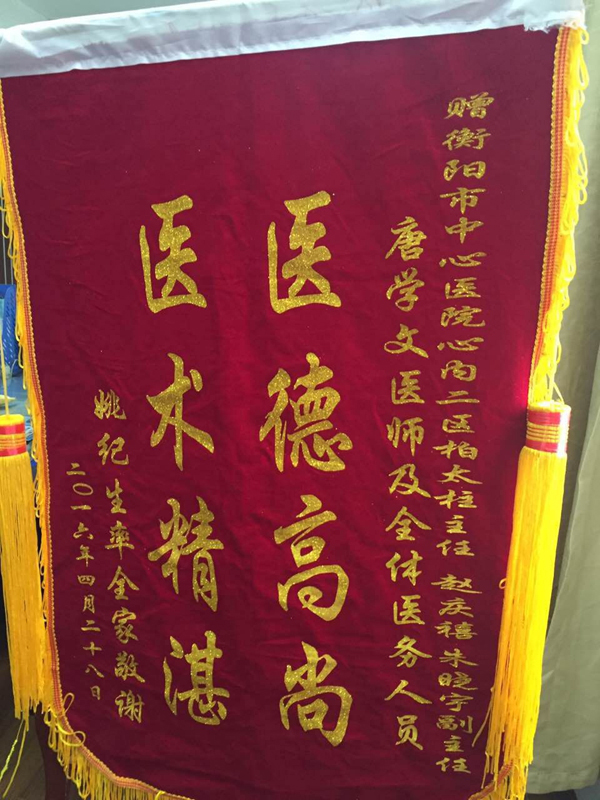 赠衡阳市中心医院心内二区柏太柱主任 赵庆禧朱晓宇副主任
唐学文医师及全体医务人员
医德高尚
医术精湛
姚纪生率全家敬谢
二〇一六年四月二十八日